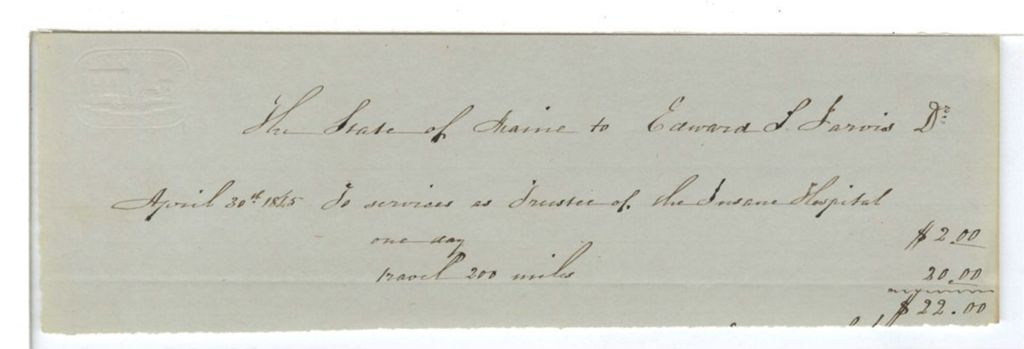 The State of Maine to Edward S. Jarvis Dr
April 30th 1845 To services as Trustee of the Insane Hospital
one day $2.00
travel 200 miles 20.00
$22.00